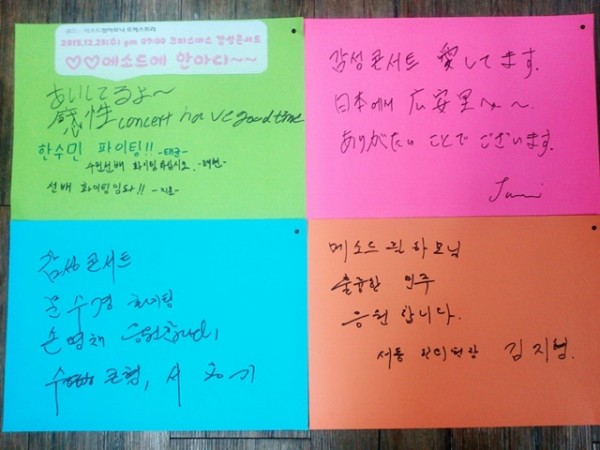 메소드필하모닉 오케스트라
2015.12.23(수) pm 07:30 크리스마스 감성콘서트
♡♡메소드에 안아디~~
あいしてるよ~
感性 concert have good time
한수민 파이팅!! -태균-
수민선배 화이팅하십시오. -태현-
선배 화이팅입니다!! -지훈-
감성콘서트 愛してます.
日本에서 広安里へ~.
ありがたい ことでございます.
감성콘서트
문수경 화이팅
손명채 응원합니다!
메소드 필하모닉
훌륭한 연주
응원합니다.
김지형.